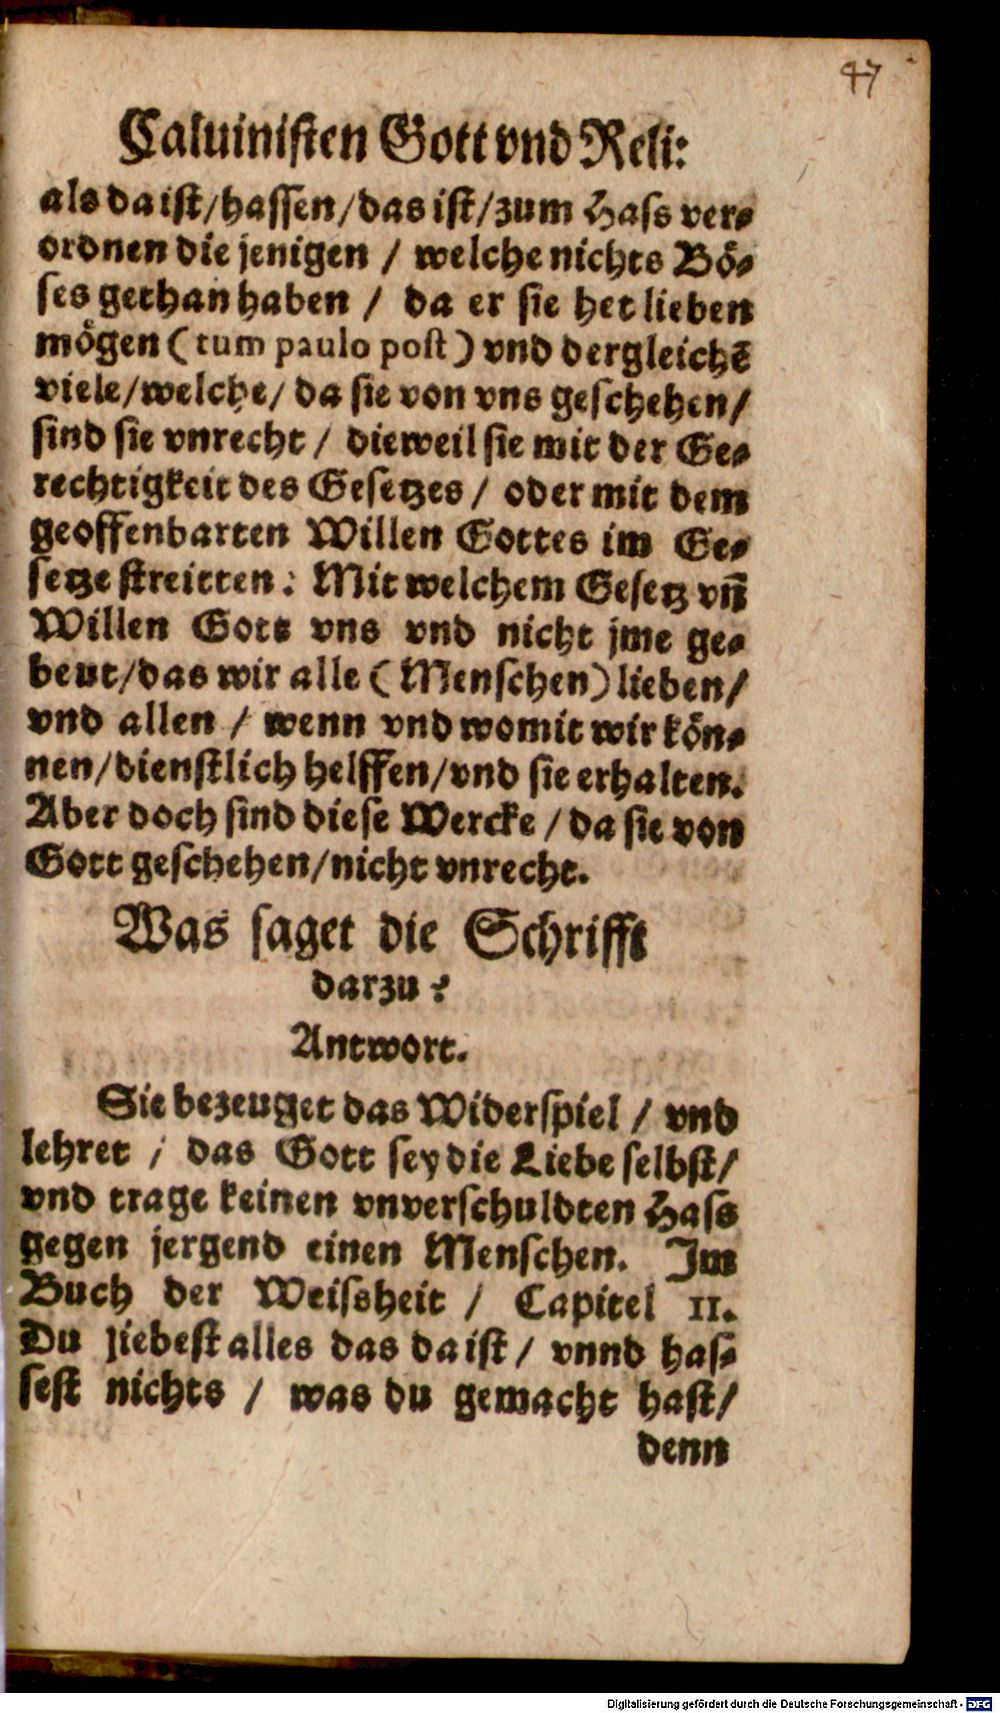 47
Caluinisten Gott vnd Reli:
als da ist/hassen/das ist/zum Hass ver-
ordnen die jenigen / welche nichts Bö-
ses gethan haben / da er sie het lieben
mögen (tum paulo post) vnd dergleichē
viele/welche/ da sie von vns geschehen/
sind sie vnrecht / dieweil sie mit der Ge-
rechtigkeit des Gesetzes / oder mit dem
geoffenbarten Willen Gottes im Ge-
setze streitten: Mit welchem Gesetz vñ
Willen Gott vns vnd nicht jme ge-
beut/das wir alle (Menschen) lieben/
vnd allen / wenn vnd womit wir kön-
nen/dienstlich helffen/vnd sie erhalten.
Aber doch sind diese Wercke / da sie von
Gott geschehen/nicht vnrecht.
Was saget die Schrifft
darzu?
Antwort.
Sie bezeuget das Widerspiel / vnd
lehret / das Gott sey die Liebe selbst/
vnd trage keinen vnverschuldten Hass
gegen jergend einen Menschen. Im
Buch der Weissheit / Capitel 11.
Du liebest alles das da ist / vnnd has-
sest nichts / was du gemacht hast/
denn
Digitalisierung gefördert durch die Deutsche Forschungsgemeinschaft - DFG